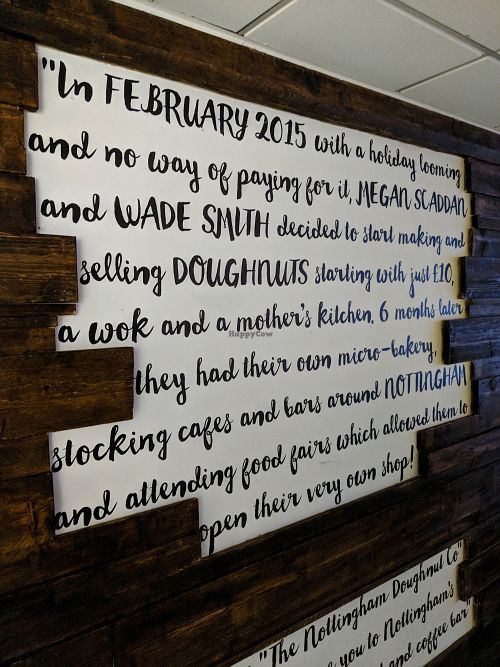 "In FEBRUARY 2015 with a holiday looming
and no way of paying for it, MEGAN SCADDAN
and WADE SMITH decided to start making and
selling DOUGHNUTS starting with just £10,
a wok and a mother's kitchen. 6 months later
HappyCow
they had their own micro-bakery,
stocking cafes and bars around NOTTINGHAM
and attending food fairs which allowed them to
open their very own shop!
"The Nottingham Doughnut Co"
you to Nottingham's
and coffee bar"